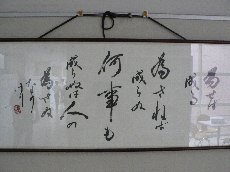 為せば
成る
為さねば
成らぬ
何事も
成らぬは人の
為さぬ